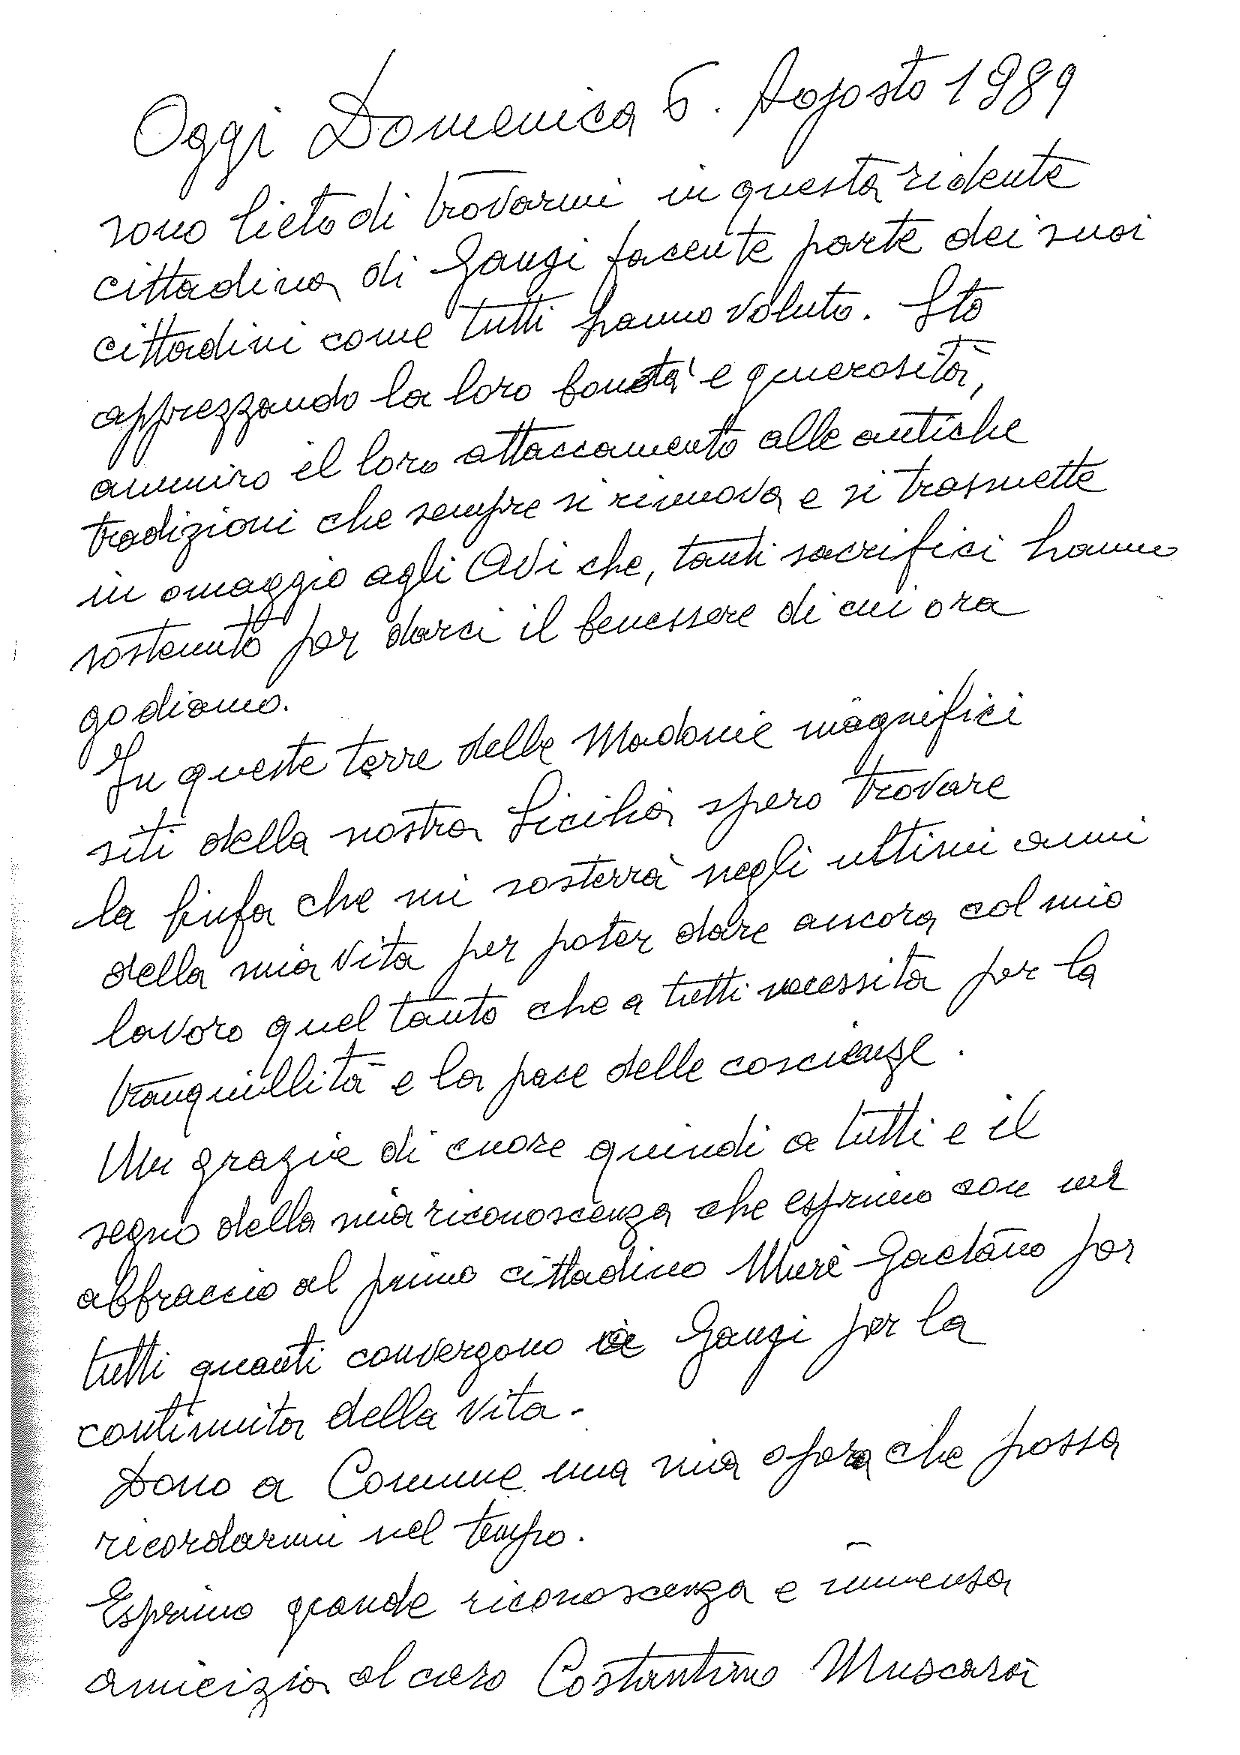 Oggi Domenica 6. Agosto 1989
sono lieto di trovarmi in questa ridente
cittadina di Gangi facente parte dei suoi
cittadini come tutti hanno voluto. Sto
apprezzando la loro bontà e generosità,
ammiro il loro attaccamento alle antiche
tradizioni che sempre si rinnova e si trasmette
in omaggio agli Avi che, tanti sacrifici hanno
sostenuto per darci il benessere di cui ora
godiamo.
In queste terre delle Madonie magnifici
siti della nostra Sicilia spero trovare
la linfa che mi sosterrà negli ultimi anni
della mia vita per poter dare ancora col mio
lavoro quel tanto che a tutti necessita per la
tranquillità e la pace delle coscienze.
Un grazie di cuore quindi a tutti e il
segno della mia riconoscenza che esprimo con un
abbraccio al primo cittadino Murè Gaetano per
tutti quanti convergono a Gangi per la
continuita della vita.
Dono a Comune una mia opera che possa
ricordarmi nel tempo.
Esprimo grande riconoscenza e immensa
amicizia al caro Costantino Muscarà